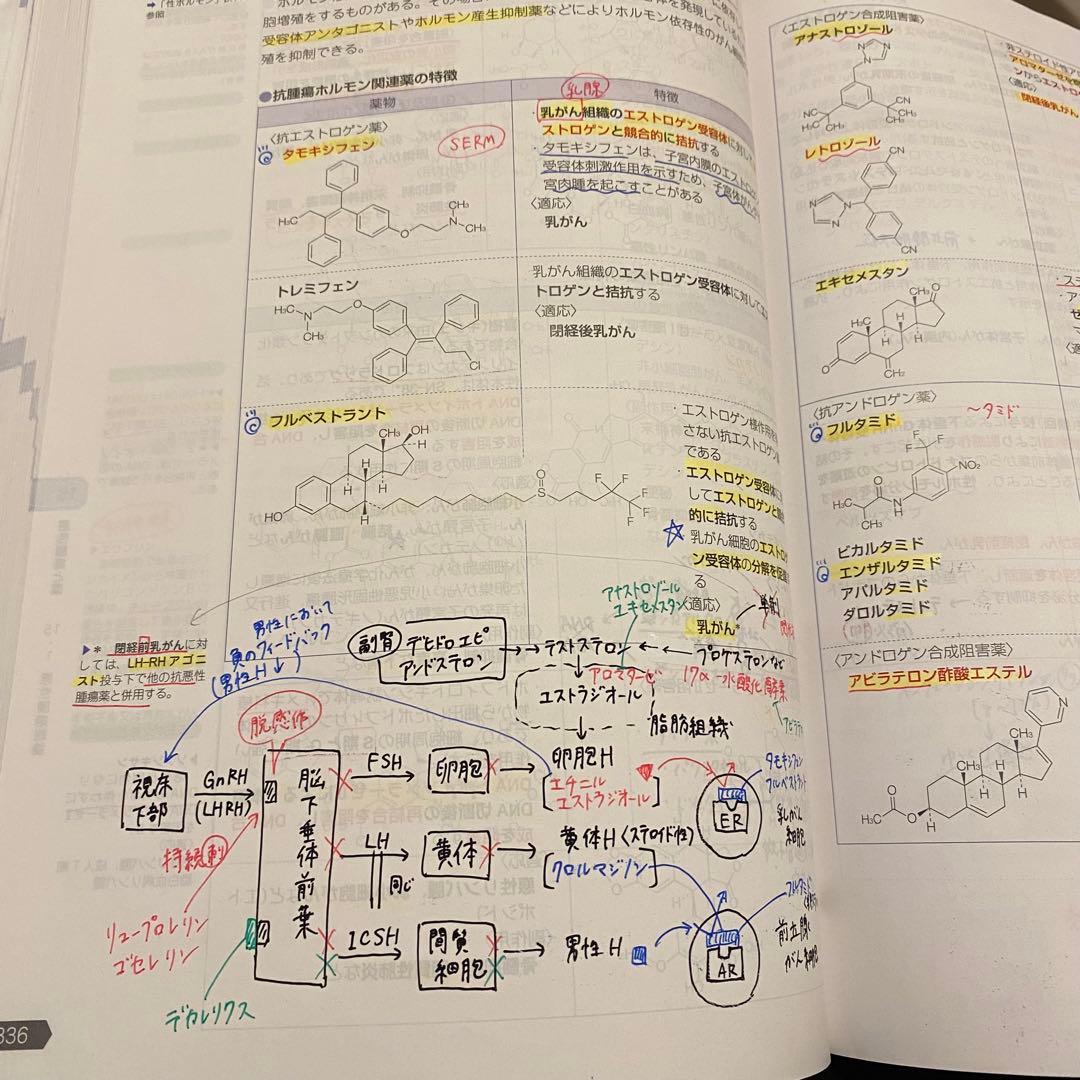 参照
胞増殖をするものがある。
受容体アンタゴニストやホルモン産生抑制薬などによりホルモン依存性のがん
殖を抑制できる。
●抗腫瘍ホルモン関連薬の特徴
乳腺
薬物
特徴
〈抗エストロゲン薬〉
タモキシフェン
SERM
乳がん組織のエストロゲン受容体に対し
ストロゲンと競合的に拮抗する
・タモキシフェンは、子宮内膜のエストロ
受容体刺激作用を示すため、子宮体がん
宮肉腫を起こすことがある
〈適応〉
乳がん
H₃C
CH₃
N
CH₃
O
トレミフェン
乳がん組織のエストロゲン受容体に対して
トロゲンと拮抗する
〈適応〉
閉経後乳がん
H₃C
N
CH₃
O
Cl
フルベストラント
・エストロゲン様作用を
さない抗エストロゲン
である
・エストロゲン受容体
してエストロゲンと
的に拮抗する
☆
・乳がん細胞のエストロ
ン受容体の分解を促
る
〈適応〉
乳がん*
CH₃
OH
H
H
H
HO
O
S
F F
F F
F
▶* 閉経前乳がんに対
しては、LH-RHアゴニ
スト投与下で他の抗悪性
腫瘍薬と併用する。
男性において
負のフィードバック
(男性H↓)
副腎
デヒドロエピ
アンドステロン
テストステロン
プロゲステロンなど
アナストロゾール
エキセメスタン
アロマターゼ
17α-水酸化酵素
アビラテ
エストラジオール
脂肪組織
脱感作
視床
下部
GnRH
(LHRH)
持続刺
リュープロレリン
ゴセレリン
デガレリクス
脳下垂体前葉
FSH
卵胞
卵胞H
エチニル
エストラジオール
ER
タモキシフェン
フルベストラント
乳がん
細胞
LH
同じ
黄体
黄体H(ステロイド性)
クロルマジノン
ICSH
間質
細胞
男性H
AR
フルタミド
前立腺
がん細胞
336
〈エストロゲン合成阻害薬〉
アナストロゾール
非ステロイド性
アロマターゼ
ンからエスト
〈適応〉
閉経後乳がん
NC
H₃C
CH₃
CN
CH₃
CH₃
レトロゾール
CN
CN
エキセメスタン
CH₃
O
CH₃
H
H
H
O
CH₂
〈抗アンドロゲン薬〉
~タミド
フルタミド
F
F
F
NO₂
O
H₃C
N
H
CH₃
ビカルタミド
エンザルタミド
アパルタミド
ダロルタミド
〈アンドロゲン合成阻害薬〉
アビラテロン酢酸エステル
N
CH₃
CH₃
H
H
H
O
H₃C
O
H